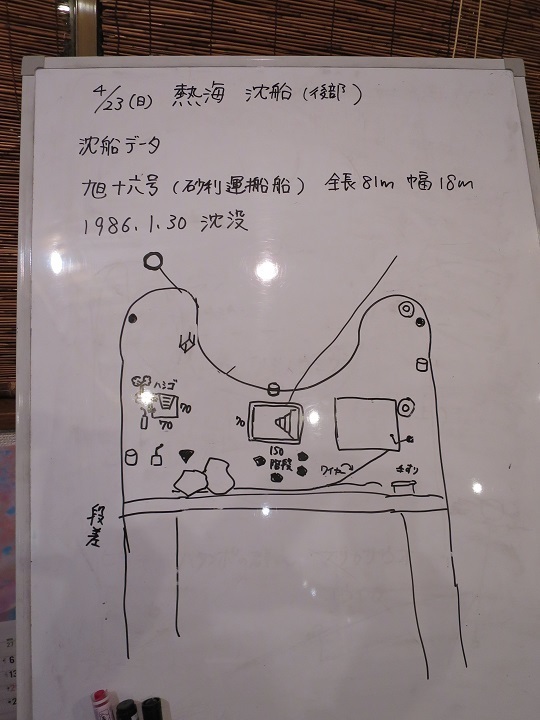 4/23(日) 熱海 沈船(後部)
沈船データ
旭十六号(砂利運搬船) 全長81m 幅18m
1986.1.30 沈没
ハシゴ
70
70
70
150
階段
ワイヤー
手すり
段差